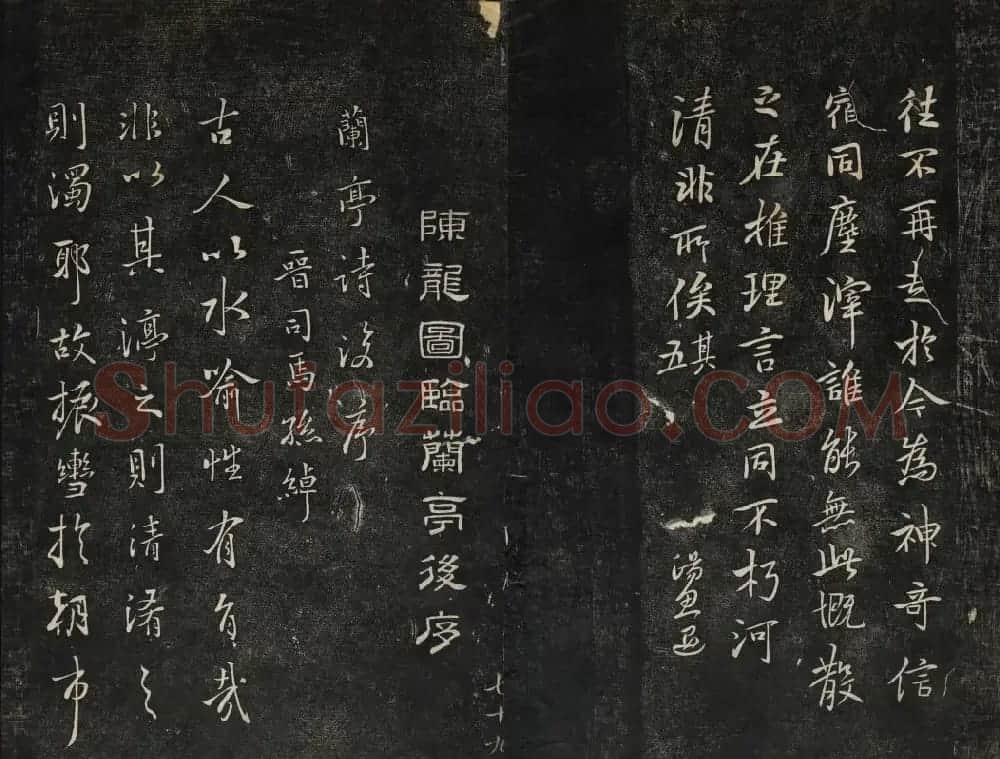 往不再起於今為神奇信
宿同塵滓誰能無此慨散
之在推理言立同不朽河
清非所俟其五
七十九
陳龍圖臨蘭亭後序
蘭亭詩後序
晉司馬孫綽
古人以水喻性有旨哉
非以其渟之則清淆之
則濁耶故振轡於朝市
Shufaziliao.COM